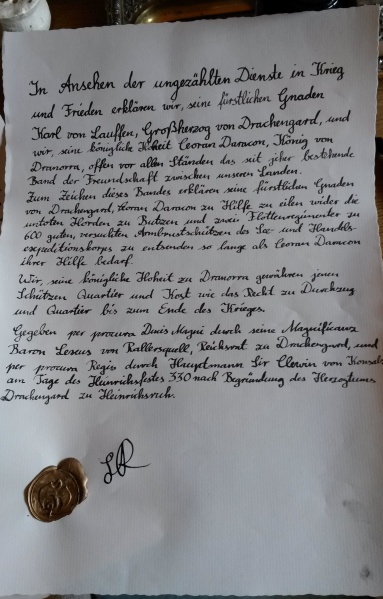 In Ansehen der ungezählten Dienste in Krieg
und Frieden erklären wir, seine fürstlichen Gnaden
Karl von Lauffen, Großherzog von Drachengard, und
wir, seine königliche Hoheit Leoran Daracon, König von
Dranorra, offen vor allen Ständen das seit jeher bestehende
Band der Freundschaft zwischen unseren Landen.
Zum Zeichen dieses Bandes erklären seine fürstlichen Gnaden
von Drachengard, Leoran Daracon zu Hilfe zu eilen wider die
untoten Horden zu und zwei Flottenregimenter zu
600 guten, versuchten Armbrustschützen des See- und Handels-
expeditionskorps zu entsenden so lange als Leoran Daracon
ihrer Hilfe bedarf.
Wir, seine königliche Hoheit zu Dranorra gewähren jenen
Schützen Quartier und Kost wie das Recht zu Durchzug
und Quartier bis zum Ende des Krieges.
Gegeben per procura Ducis Magni durch seine Magnifizenz
Baron von Rallersquell, Reichsrat zu Drachengard, und
per procura Regis durch Hauptmann Sir von
am Tage des Heinrichsfestes 330 nach Begründung des Herzogtums
Drachengard zu Heinrichsruh.